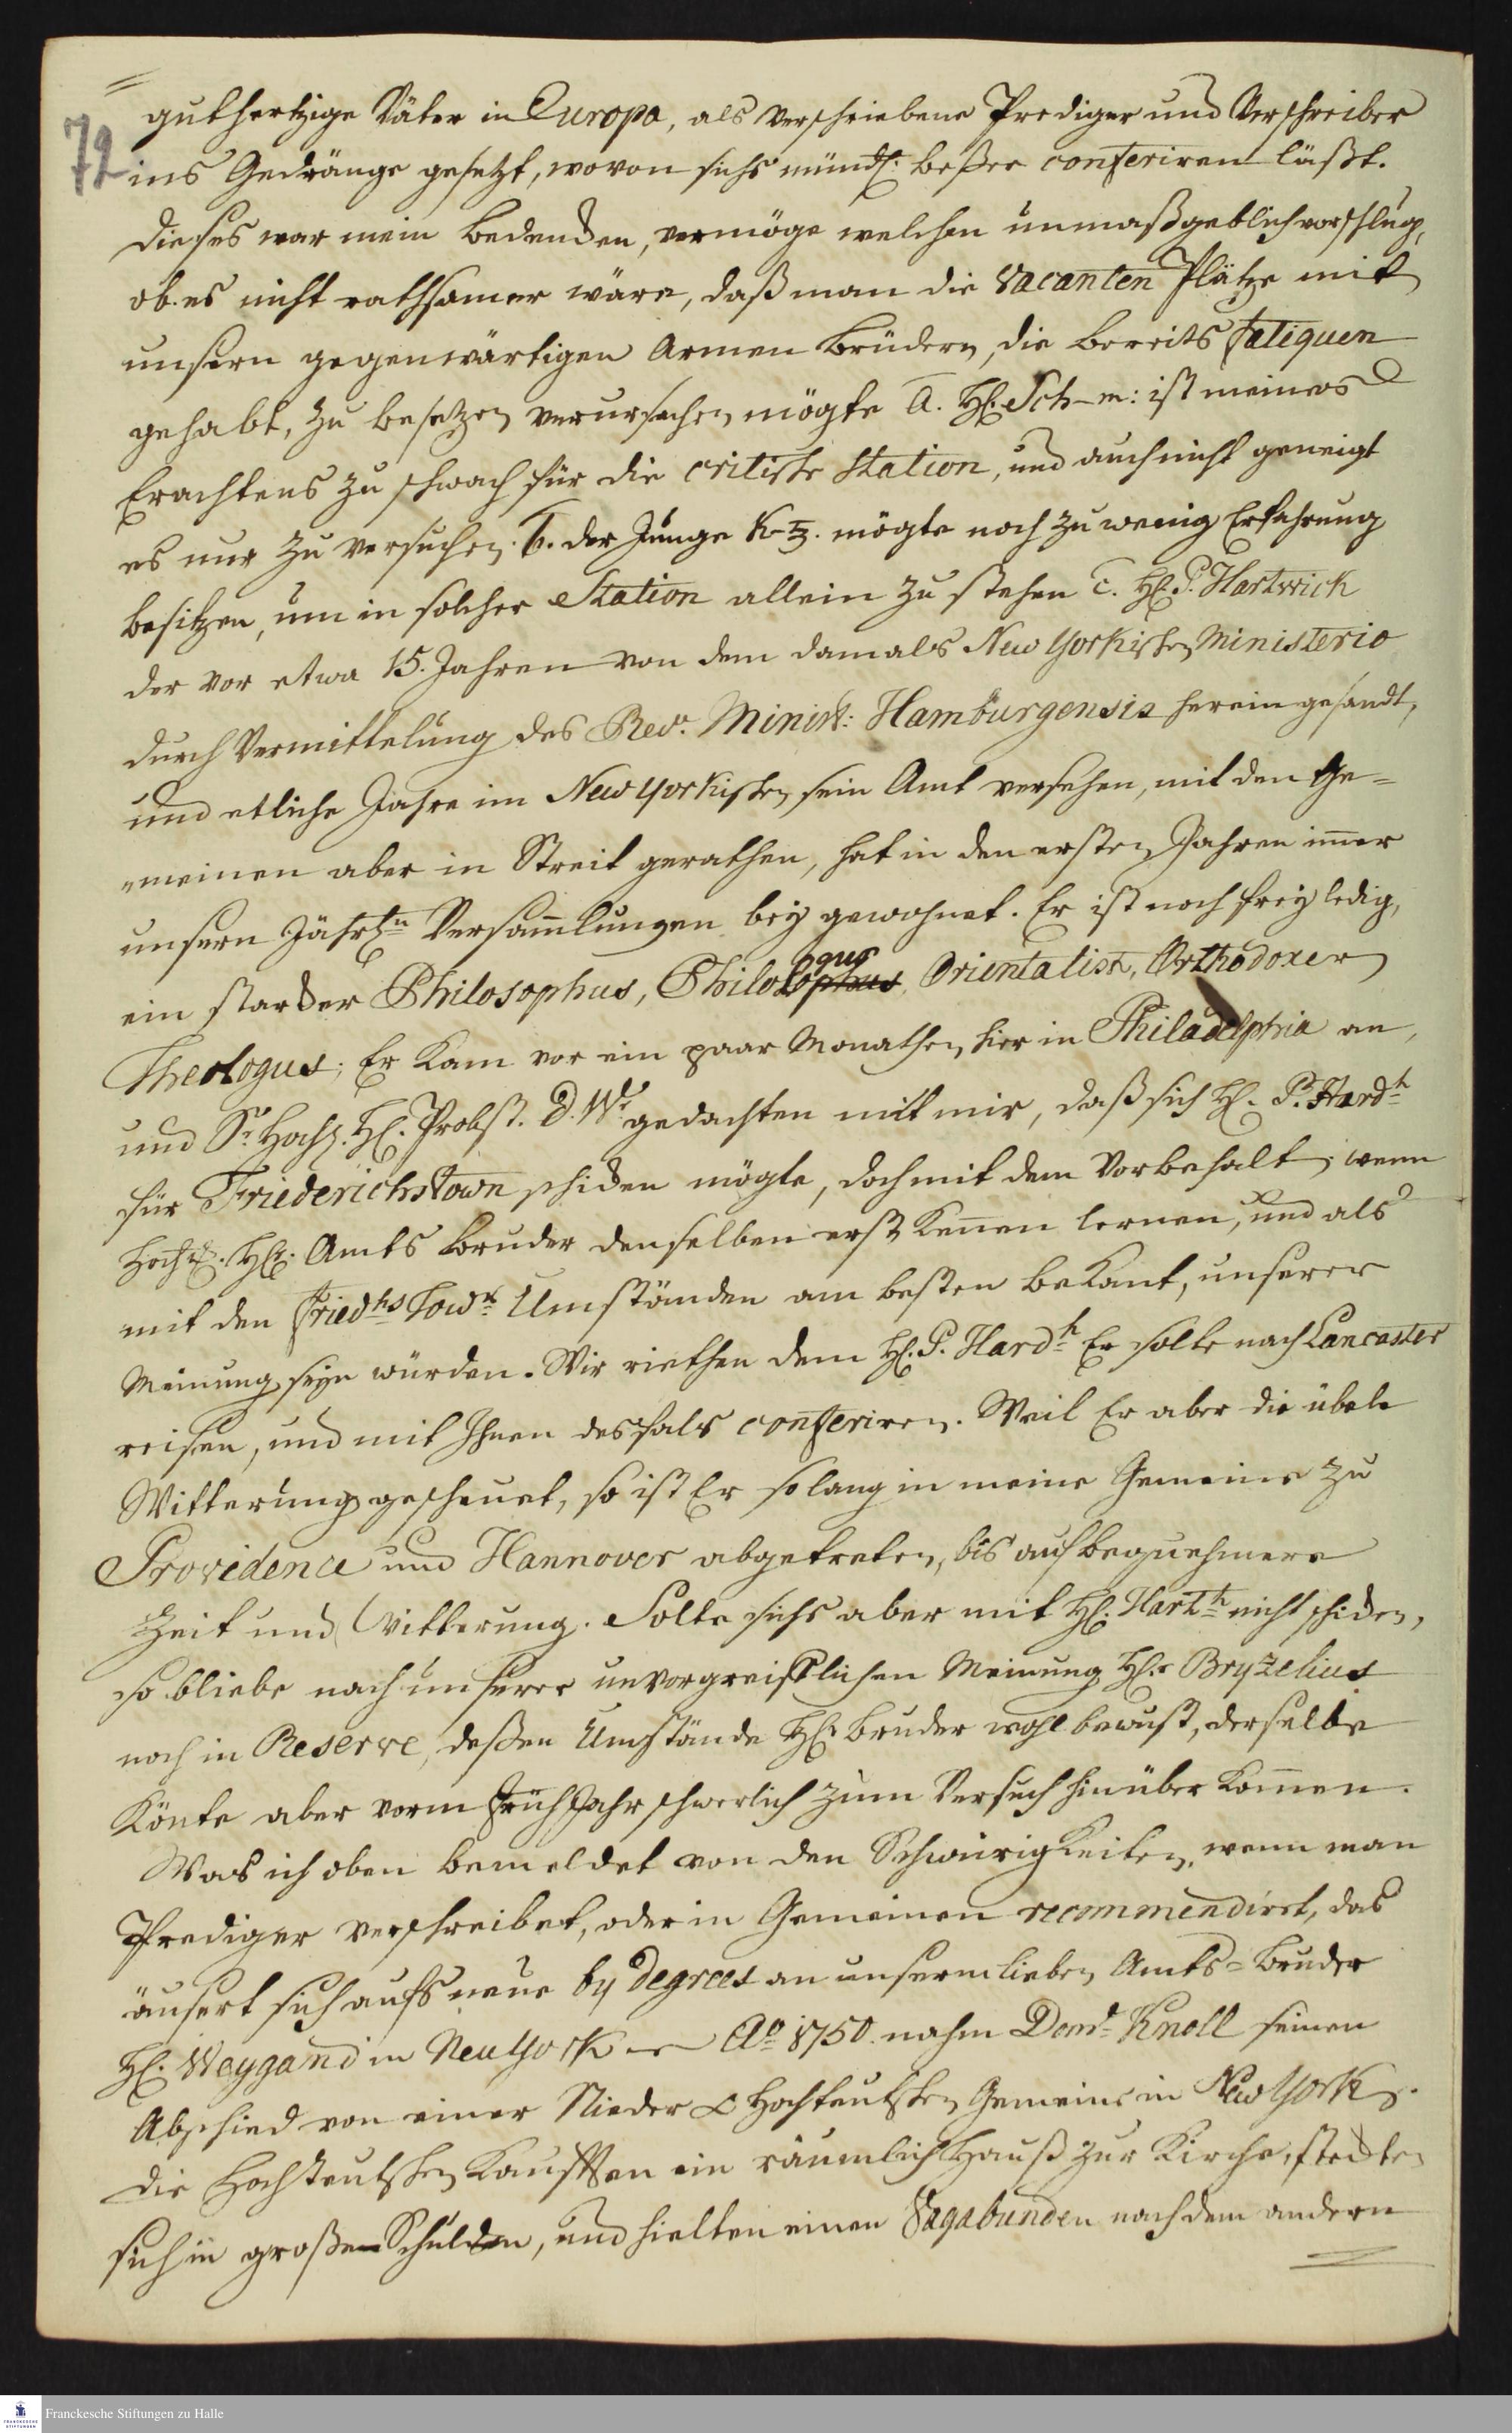 72
guthertzige Väter in Europa, als verschriebene Prediger und Verschreiber
ins Gedränge gesetzt, wovon sichs mündl: beßer conferiren läßt.
Dieses war mein Bedencken, vermöge welchen unmaßgeblich vorschlug,
ob es nicht rathsamer wäre, daß man die vacanten Plätze mit
unsern gegenwärtigen Armen Brüdern, die bereits fatiquen
gehabt, zu besetzen verursachen mögte a. H. Sch-m: ist meines
Erachtens zu schwach für die critische Station, und auch nicht geneigt
es nur zu versuchen. b. der Junge K-tz. mögte noch zu wenig Erfahrung
besitzen, um in solcher Station allein zu stehen c. H. P. Hartwick
der vor etwa 15. Jahren von dem damals New Yorkischen Ministerio
durch Vermittelung des Rev. Minist: Hamburgensis herein gesandt,
und etliche Jahre im New Yorkischen sein Amt versehen, mit den Ge-
meinen aber in Streit gerathen, hat in den ersten Jahren im̄er
unsern Jährln Versam̄lungen bey gewohnet. Er ist noch frey ledig,
ein starcker Philosophus, Philologus Orientalist, Orthodoxer
Theologus; Er kam vor ein paar Monathen hier in Philadelphia an,
und Sr. Hochw. H. Probst. D. Wr. gedachten mit mir, daß sich H. P. Hardh
für Friederichstown schicken mögte, doch mit dem Vorbehalt, wenn
H. Amts Bruder denselben erst ken̄en lernen, und als
mit den Friedhs Town Umständen am besten bekant, unserer
Meinung seyn würden. Wir riethen dem H. P. Hardh Er solte nach Lancaster
reisen, und mit Ihnen desfals conferiren. Weil Er aber die übele
Witterung gescheuet, so ist Er solang in meine Gemeine zu
Providence und Hannover abgetreten, bis auf bequehmere
Zeit und Witterung. Solte sichs aber mit H. Harth nicht schicken,
so bliebe nach unserer unvorgreifflichen Meinung H. Bryzelius
noch in Reserve, deßen Umstände H. Bruder wohl bewust, derselbe
könte aber vorm Früh Jahr schwerlich zum Versuch hinüber kom̄en.
Was ich oben bemeldet von den Schwürigkeiten, wenn man
Prediger verschreibet, oder in Gemeinen recommendirt, das
äusert sich aufs neue by degrees an unserm lieben Amts-Bruder
H. Weygand in Neu York Ao 1750. nahm Domd Knoll seinen
Abschied von einer Nieder & Hochteutschen Gemeine in New York.
Die Hochteutschen kaufften ein räumlich Hauß zur Kirche, steckten
sich in große Schulden, und hielten einen Vagabunden nach dem andern
Franckesche Stiftungen zu Halle